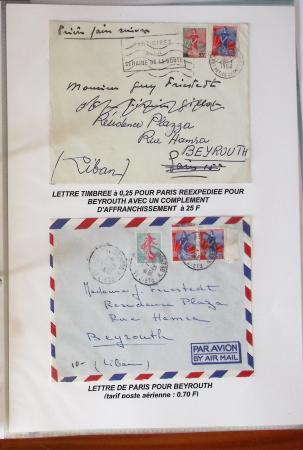 Prière faire suivre
PARTICIPEZ
A LA
SEMAINE DE LA BONTÉ
Monsieur Guy Friestedt
Résidence Plazza
Rue Hamra
BEYROUTH
(Liban)
LETTRE TIMBREE à 0,25 POUR PARIS REEXPEDIEE POUR
BEYROUTH AVEC UN COMPLEMENT
D'AFFRANCHISSEMENT à 25 F
Madame J. Friestedt
Residence Plaza
Rue Hamra
Beyrouth
(Liban)
PAR AVION
BY AIR MAIL
LETTRE DE PARIS POUR BEYROUTH
(tarif poste aérienne : 0,70 F)